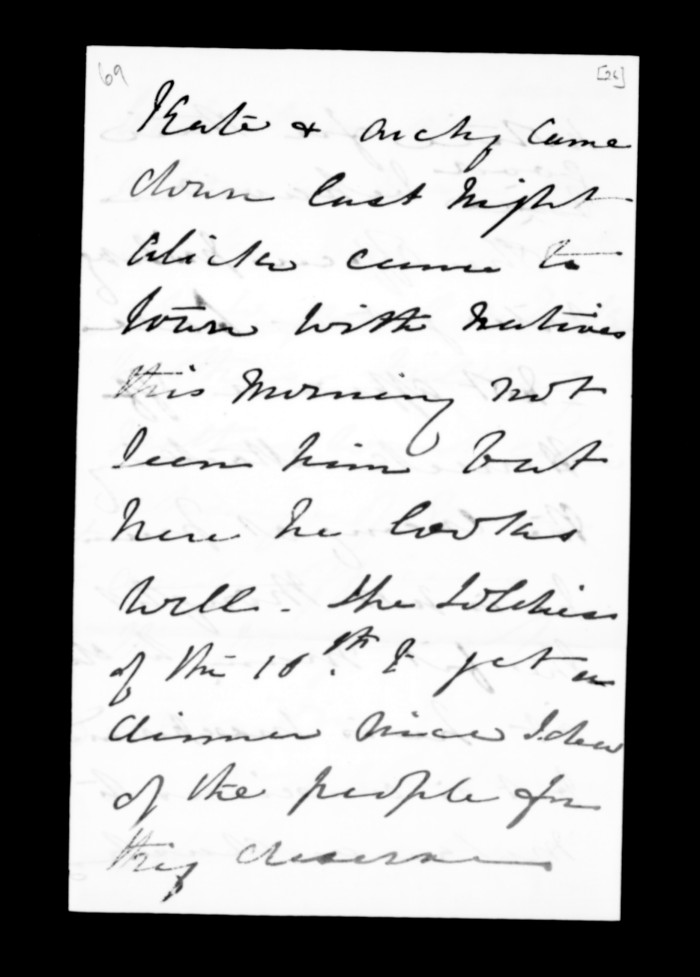 69
[26]
Kate & Archy Came
down last Night
Alick came to
town with Natives
this Morning not
seen him but
hear he looks
well. The Soldiers
of the 18th get a
dinner Nice Idea
of the people for
they deserve